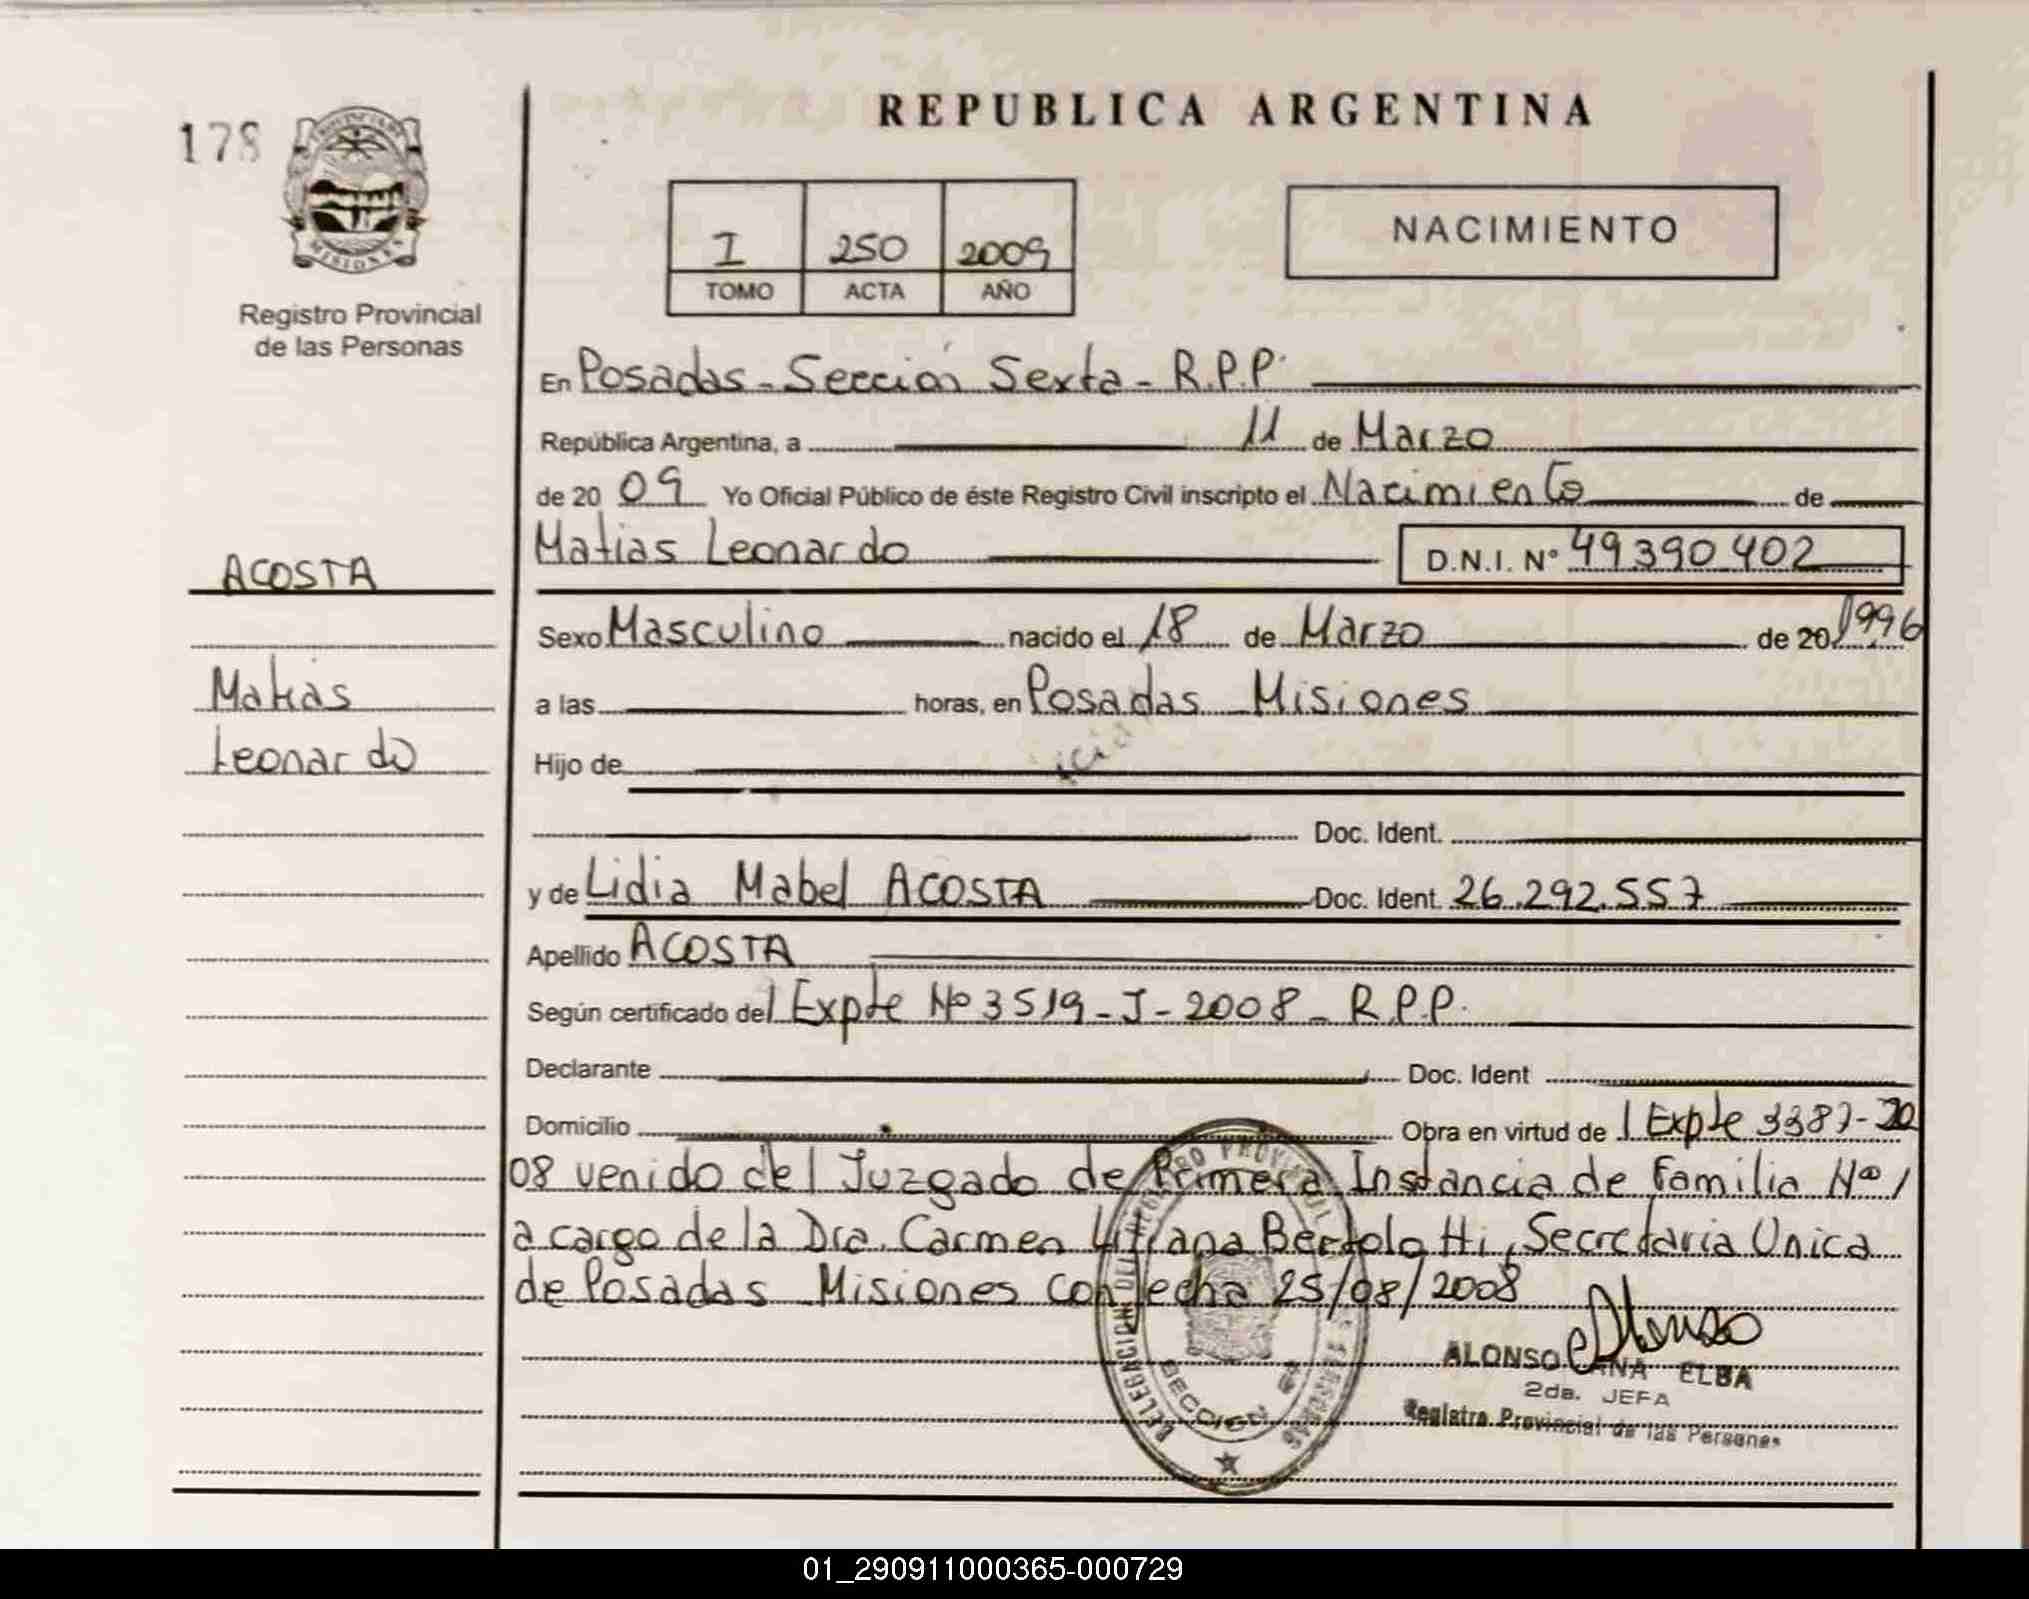 REPUBLICA ARGENTINA
178
PROVINCIA DE
MISIONES
Registro Provincial
de las Personas
I 250 2009
TOMO ACTA AÑO
NACIMIENTO
En Posadas - Sección Sexta - R.P.P.
República Argentina, a 11 de Marzo
de 20 09 Yo Oficial Público de éste Registro Civil inscripto el Nacimiento de
Matias Leonardo D.N.I. Nº 49390402
ACOSTA
Sexo Masculino nacido el 18 de Marzo de 20 1996
Matias
a las horas, en Posadas Misiones
Leonardo
Hijo de
Doc. Ident.
y de Lidia Mabel ACOSTA Doc. Ident. 26.292.557
Apellido ACOSTA
Según certificado del Expte Nº 3519-J-2008-R.P.P.
Declarante Doc. Ident
Domicilio Obra en virtud de l Expte 3387-20
08 venido del Juzgado de Primera Instancia de Familia Nº 1
a cargo de la Dra. Carmen Bertolotti, Secretaria Unica
de Posadas Misiones con fecha 25/08/2008
ALONSO ANA ELBA
2da. JEFA
Registro Provincial de las Personas
DELEGACION DEL REGISTRO PROVINCIAL DE LAS PERSONAS
SECCION 6ª
01_290911000365-000729